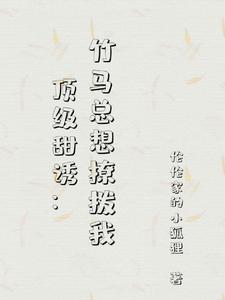 顶级甜诱：
竹马总想撩拨我
伦伦家的小狐狸 著